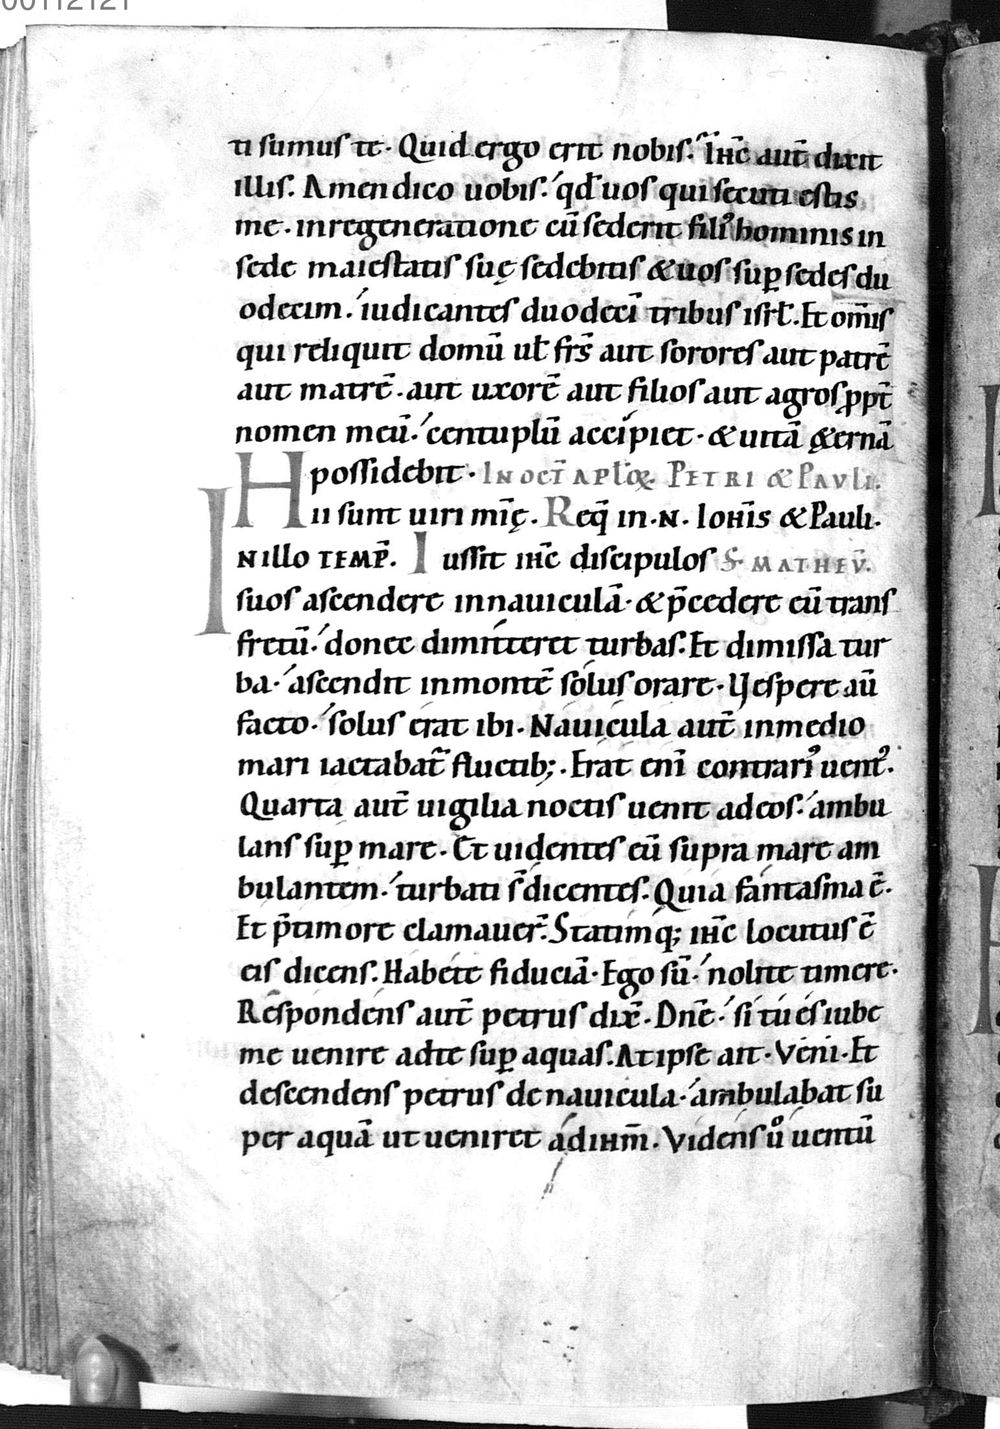 00112121
ti sumus te. Quid ergo erit nobis. Ihc̄ aut̄ dixit
illis. Amen dico uobis. qđ uos qui secuti estis
me. in regeneratione cū sederit filiꝰ hominis in
sede maiestatis suę sedebitis & uos suꝑ sedes du
odecim. iudicantes duodecī tribus isrl̄. Et om̄is
qui reliquit domū ul̄ frs̄ aut sorores aut patrē
aut matrē. aut uxorē aut filios aut agros ꝓpt̄
nomen meū. centuplū accipiet. & uitā &ernā
possidebit. IN OCT̄ APL̄OꝜ PETRI & PAVLI.
Hii sunt uiri mīę. Req̄ in .N. Ioh̄is & Pauli.
IN illo TEMP̄. Iussit ihc̄ discipulos S. MATHEV̄.
suos ascendere in nauiculā. & p̄cedere eū trans
fretū. donec dimitteret turbas. Et dimissa tur
ba. ascendit in montē solus orare. Vespere aū
facto. solus erat ibi. Nauicula aut̄ in medio
mari iactabat᷑ fluctib;. Erat enī contrariꝰ uentꝰ.
Quarta aut̄ uigilia noctis uenit ad eos. ambu
lans suꝑ mare. Et uidentes eū supra mare am
bulantem. turbati s̄ dicentes. Quia fantasma ē.
Et p̄ timore clamauer̄. Statimq; ihc̄ locutus ē
eis dicens. Habete fiduciā. Ego sū. nolite timere.
Respondens aut̄ petrus dix̄. Dn̄e. si tu es iube
me uenire ad te suꝑ aquas. At ipse ait. Veni. Et
descendens petrus de nauicula. ambulabat su
per aquā ut ueniret ad ihm̄. Videns ů uentū